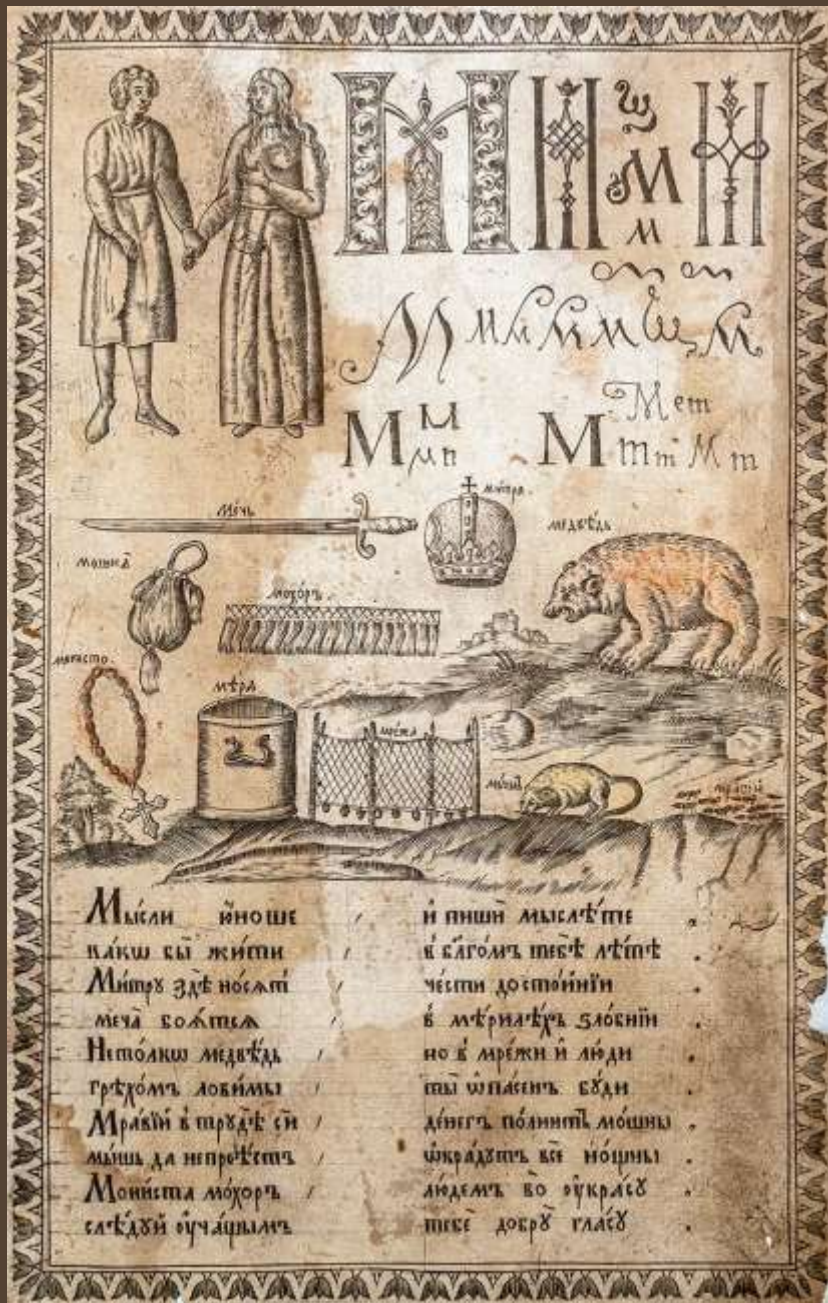 М М М М
м
М м м м м
М м
М Мет
т т М т
мечь
митра
медвѣдь
мошна
мохоръ
монисто
мѣра
мрежа
мышь
мравїй
Мы́сли ю҆́ноше / и҆ пишѝ мыслѣ́те .
ка́кѡ бы̀ жи́ти / в бл҃го́мъ тебѣ̀ лѣ́тѣ .
Ми́тру здѣ̀ но́сѧтъ / че́сти досто́йнїи .
меча̀ боѧ́тсѧ / в мѣ́рилѣхъ ѕло́бнїи .
Нето́лкѡ медвѣ́дь / но в мре́жи и҆ лю́ди
грѣхо́мъ лови́мы / ты̀ ѡ҆па́сенъ бу́ди
Мра́вїй в трудѣ̀ сѝ / де́негъ по́лнитъ мо́шны .
мы́шь да непроѣ́стъ / ѡ҆кра́дутъ всѐ но́щны .
Мони́ста мо́хоръ / лю́демъ во ᲂу҆кра́су .
слѣ́дуй ᲂу҆ча́щымъ / тебѐ добру̀ гла́су .